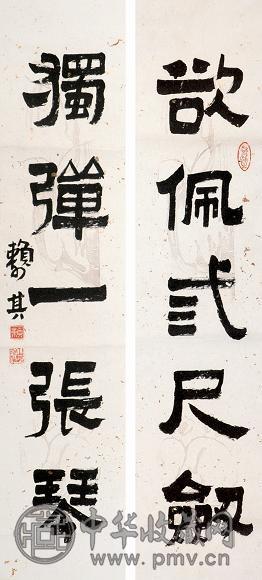 欲佩弍尺劔
獨彈一張琴
賴少其
中华收藏网
www.pmv.cn